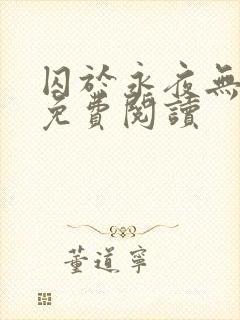 囚於永夜無
免費閱讀
董道寧